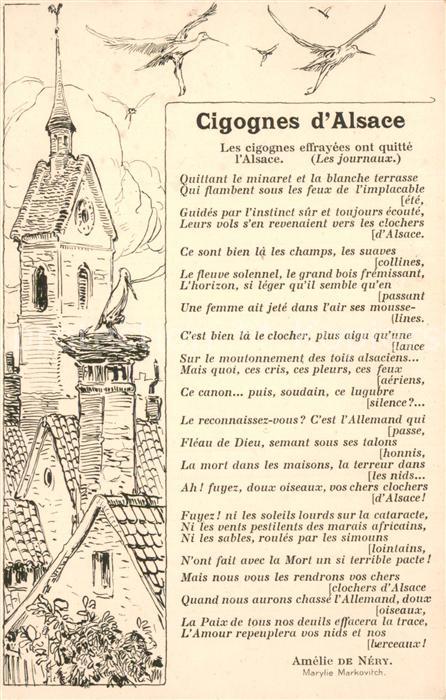 Cigognes d'Alsace
Les cigognes effrayées ont quitté
l'Alsace. (Les journaux.)
Quittant le minaret et la blanche terrasse
Qui flambent sous les feux de l'implacable
[été,
Guidés par l'instinct sûr et toujours écouté,
Leurs vols s'en revenaient vers les clochers
[d'Alsace.
Ce sont bien là les champs, les suaves
[collines,
Le fleuve solennel, le grand bois frémissant,
L'horizon, si léger qu'il semble qu'en
[passant
Une femme ait jeté dans l'air ses mousse-
[lines.
C'est bien là le clocher, plus aigu qu'une
[lance
Sur le moutonnement des toits alsaciens...
Mais quoi, ces cris, ces pleurs, ces feux
[aériens,
Ce canon... puis, soudain, ce lugubre
[silence ?...
Le reconnaissez-vous ? C'est l'Allemand qui
[passe,
Fléau de Dieu, semant sous ses talons
[honnis,
La mort dans les maisons, la terreur dans
[les nids...
Ah ! fuyez, doux oiseaux, vos chers clochers
[d'Alsace !
Fuyez ! ni les soleils lourds sur la cataracte,
Ni les vents pestilents des marais africains,
Ni les sables, roulés par les simouns
[lointains,
N'ont fait avec la Mort un si terrible pacte !
Mais nous vous les rendrons vos chers
[clochers d'Alsace
Quand nous aurons chassé l'Allemand, doux
[oiseaux,
La Paix de tous nos deuils effacera la trace,
L'Amour repeuplera vos nids et nos
[berceaux !
Amélie DE NÉRY.
Marylie Markovitch.